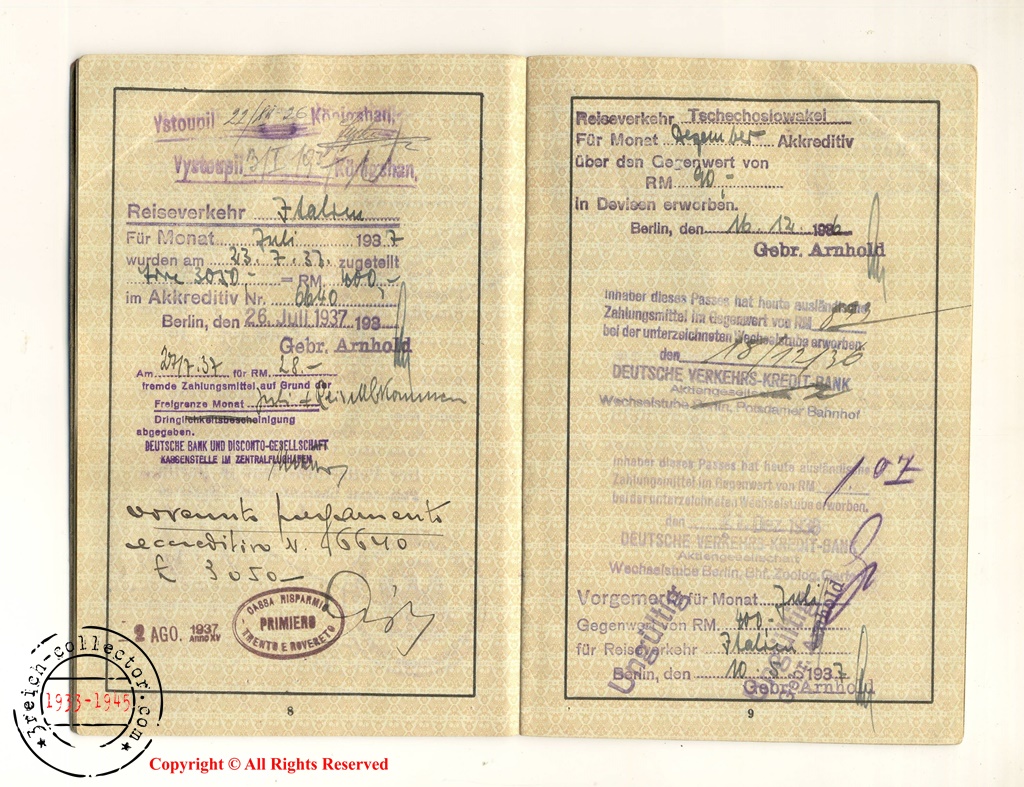 Vystoupil 22/XII 26 Königshan,
Vystoupil 3/I 193 Königshan,
Reiseverkehr Italien
Für Monat Juli 1937
wurden am 23.7.37. zugeteilt
Lire 3050.- = RM. 400,-
im Akkreditiv Nr. 6640
Berlin, den 26. Juli 1937 193
Gebr. Arnhold
Am 27/7.37 für RM. 28.-
fremde Zahlungsmittel auf Grund der
Freigrenze Monat Juli
Dringlichkeitsbescheinigung
abgegeben.
DEUTSCHE BANK UND DISCONTO-GESELLSCHAFT
KASSENSTELLE IM ZENTRALFLUGHAFEN
avvenuto pagamento
accreditivo N. 6640
£ 3050-
2 AGO. 1937
ANNO XV
CASSA RISPARMIO
PRIMIERO
TRENTO E ROVERETO
8
Reiseverkehr Tschechoslowakei
Für Monat Dezember Akkreditiv
über den Gegenwert von
RM 90,-
in Devisen erworben.
Berlin, den 16. 12. 1936
Gebr. Arnhold
Inhaber dieses Passes hat heute ausländische
Zahlungsmittel im Gegenwert von RM
bei der unterzeichneten Wechselstube erworben.
den 18/12/36
DEUTSCHE VERKEHRS-KREDIT-BANK
Aktiengesellschaft
Wechselstube Berlin, Potsdamer Bahnhof
Inhaber dieses Passes hat heute ausländische
Zahlungsmittel im Gegenwert von RM 107
bei der unterzeichneten Wechselstube erworben.
den
DEUTSCHE VERKEHRS-KREDIT-BANK
Aktiengesellschaft
Wechselstube Berlin, Bhf. Zoolog. Garten
Vorgemerkt für Monat Juli
Gegenwert von RM. 400.-
für Reiseverkehr Italien
Berlin, den 10. 5. 1937
Gebr. Arnhold
Ungültig
Ungültig
Gebr. Arnhold
9
3reich-collector.com
1933-1945
Copyright © All Rights Reserved